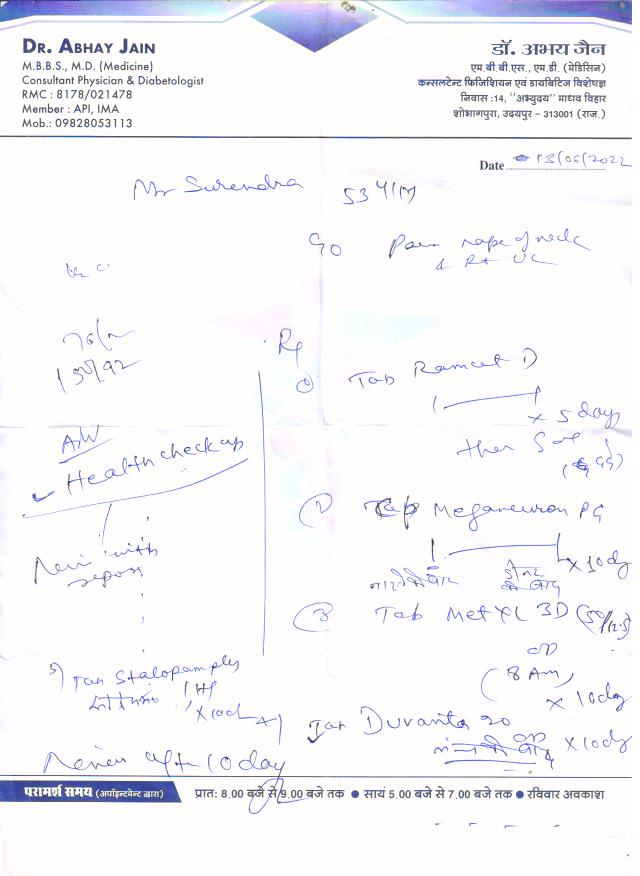 DR. ABHAY JAIN
M.B.B.S., M.D. (Medicine)
Consultant Physician & Diabetologist
RMC : 8178/021478
Member : API, IMA
Mob.: 09828053113
डॉ. अभय जैन
एम.बी.बी.एस., एम.डी. (मेडिसिन)
कन्सलटेन्ट फिजिशियन एवं डायबिटिज विशेषज्ञ
निवास :14, "अभ्युदय" माधव विहार
शोभागपुरा, उदयपुर – 313001 (राज.)
Date 13/06/2022
Mr Surendra 53 Y/M
C/o Pain nape of neck
& Rt UL
76/m
150/92
Adv
Health check up
Review with
report
Rx
① Tab Ramcet D
x 5 days
then SOS
② Tab Meganeuron PG
x 10 day
③ Tab Met XL 3D (50/12.5)
OD
(8 Am)
x 10 day
4) Tab Duvanta 20
OD x 10 day
5) Tab Stalopam plus
1 HS
x 10 d
Review after 10 day
परामर्श समय (अपॉइन्टमेन्ट द्वारा)
प्रात: 8.00 बजे से 9.00 बजे तक ● सायं 5.00 बजे से 7.00 बजे तक ● रविवार अवकाश